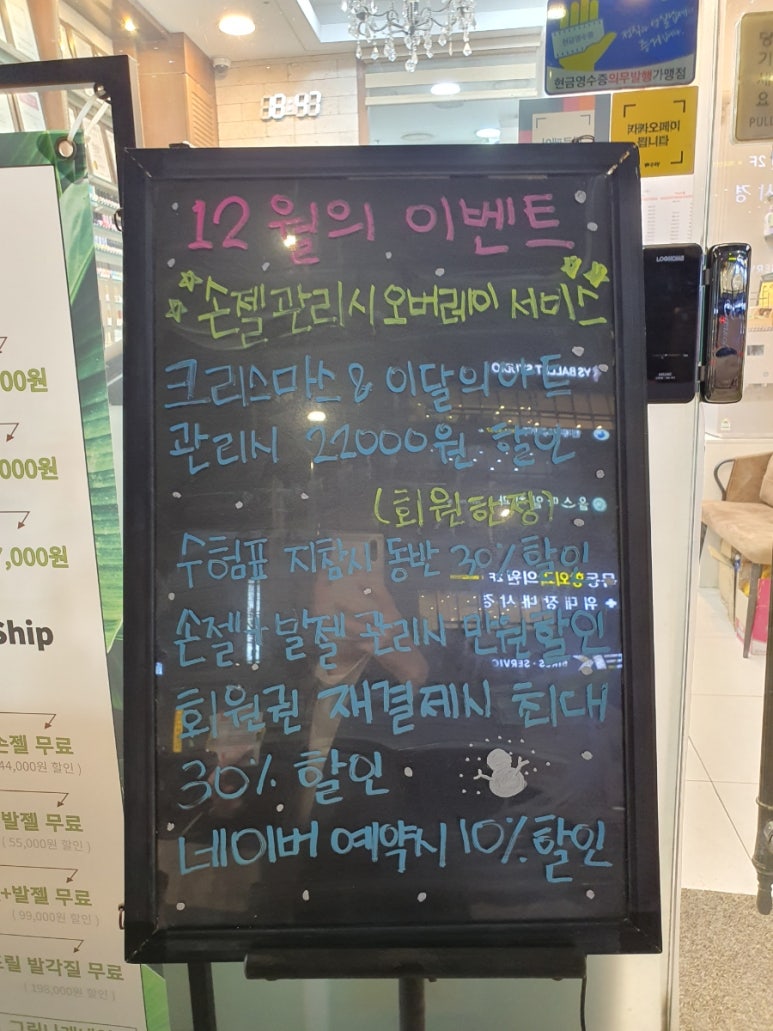 12월의 이벤트
손젤관리시 오버레이 서비스
크리스마스 & 이달의아트
관리시 22000원 할인
(회원한정)
수험표 지참시 동반 30% 할인
손젤+발젤 관리시 만원할인
회원권 재결제시 최대
30% 할인
네이버 예약시 10% 할인
현금영수증
현금영수증의무발행가맹점
18:43
PULL
00원
000원
7,000원
Ship
손젤 무료
44,000원 할인 )
발젤 무료
( 55,000원 할인 )
+발젤 무료
( 99,000원 할인 )
발각질 무료
( 198,000원 할인 )